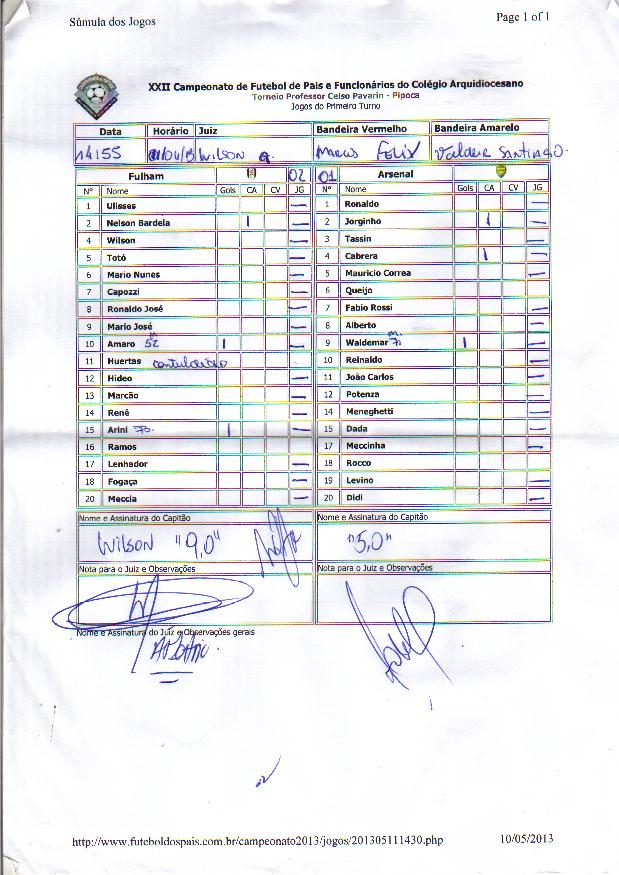 Súmula dos Jogos
Page 1 of 1
XXII Campeonato de Futebol de Pais e Funcionários do Colégio Arquidiocesano
Torneio Professor Celso Pavarin - Pipoca
Jogos do Primeiro Turno
Data Horário Juiz Bandeira Vermelho Bandeira Amarelo
14155 Wilson Felix Santiago
Fulham 02 01 Arsenal
Nº Nome Gols CA CV JG Nº Nome Gols CA CV JG
1 Ulisses — 1 Ronaldo —
2 Nelson Bardela 1 — 2 Jorginho 1 —
4 Wilson — 3 Tassin —
5 Totó — 4 Cabrera 1 —
6 Mario Nunes — 5 Mauricio Correa —
7 Capozzi — 6 Queijo
8 Ronaldo José — 7 Fabio Rossi —
9 Mario José — 8 Alberto —
10 Amaro 52 1 — 9 Waldemar 1 —
11 Huertas 10 Reinaldo —
12 Hideo — 11 João Carlos —
13 Marcão — 12 Potenza —
14 Renê — 14 Meneghetti —
15 Arini 1 — 15 Dada —
16 Ramos 17 Meccinha —
17 Lenhador — 18 Rocco
18 Fogaça — 19 Levino —
20 Meccia — 20 Didi —
Nome e Assinatura do Capitão Nome e Assinatura do Capitão
Wilson "9,0" "5,0"
Nota para o Juiz e Observações Nota para o Juiz e Observações
Nome e Assinatura do Juiz e Observações gerais
http://www.futeboldospais.com.br/campeonato2013/jogos/201305111430.php 10/05/2013